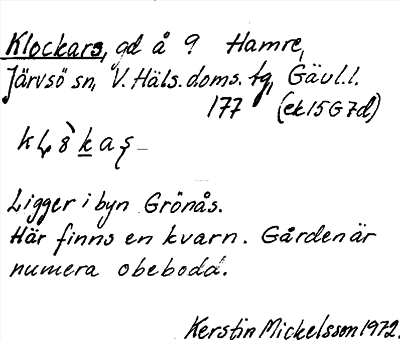 Klockars, gd å 9 Hamre,
Järvsö sn, V. Häls. doms. tg, Gävl.l.
177 (ek 15G7d)
Ligger i byn Grönås.
Här finns en kvarn. Gården är
numera obebodd.
Kerstin Mickelsson 1972.